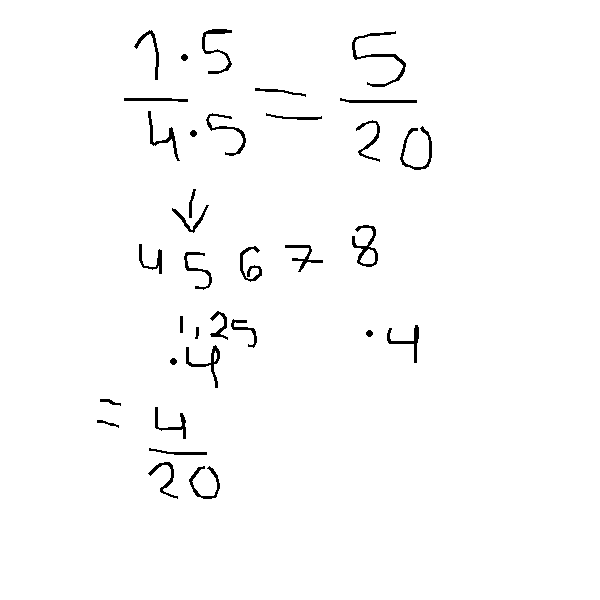 1·5 = 5
4·5 20
↓
4 5 6 7 8
1,25
·4 ·4
= 4
20